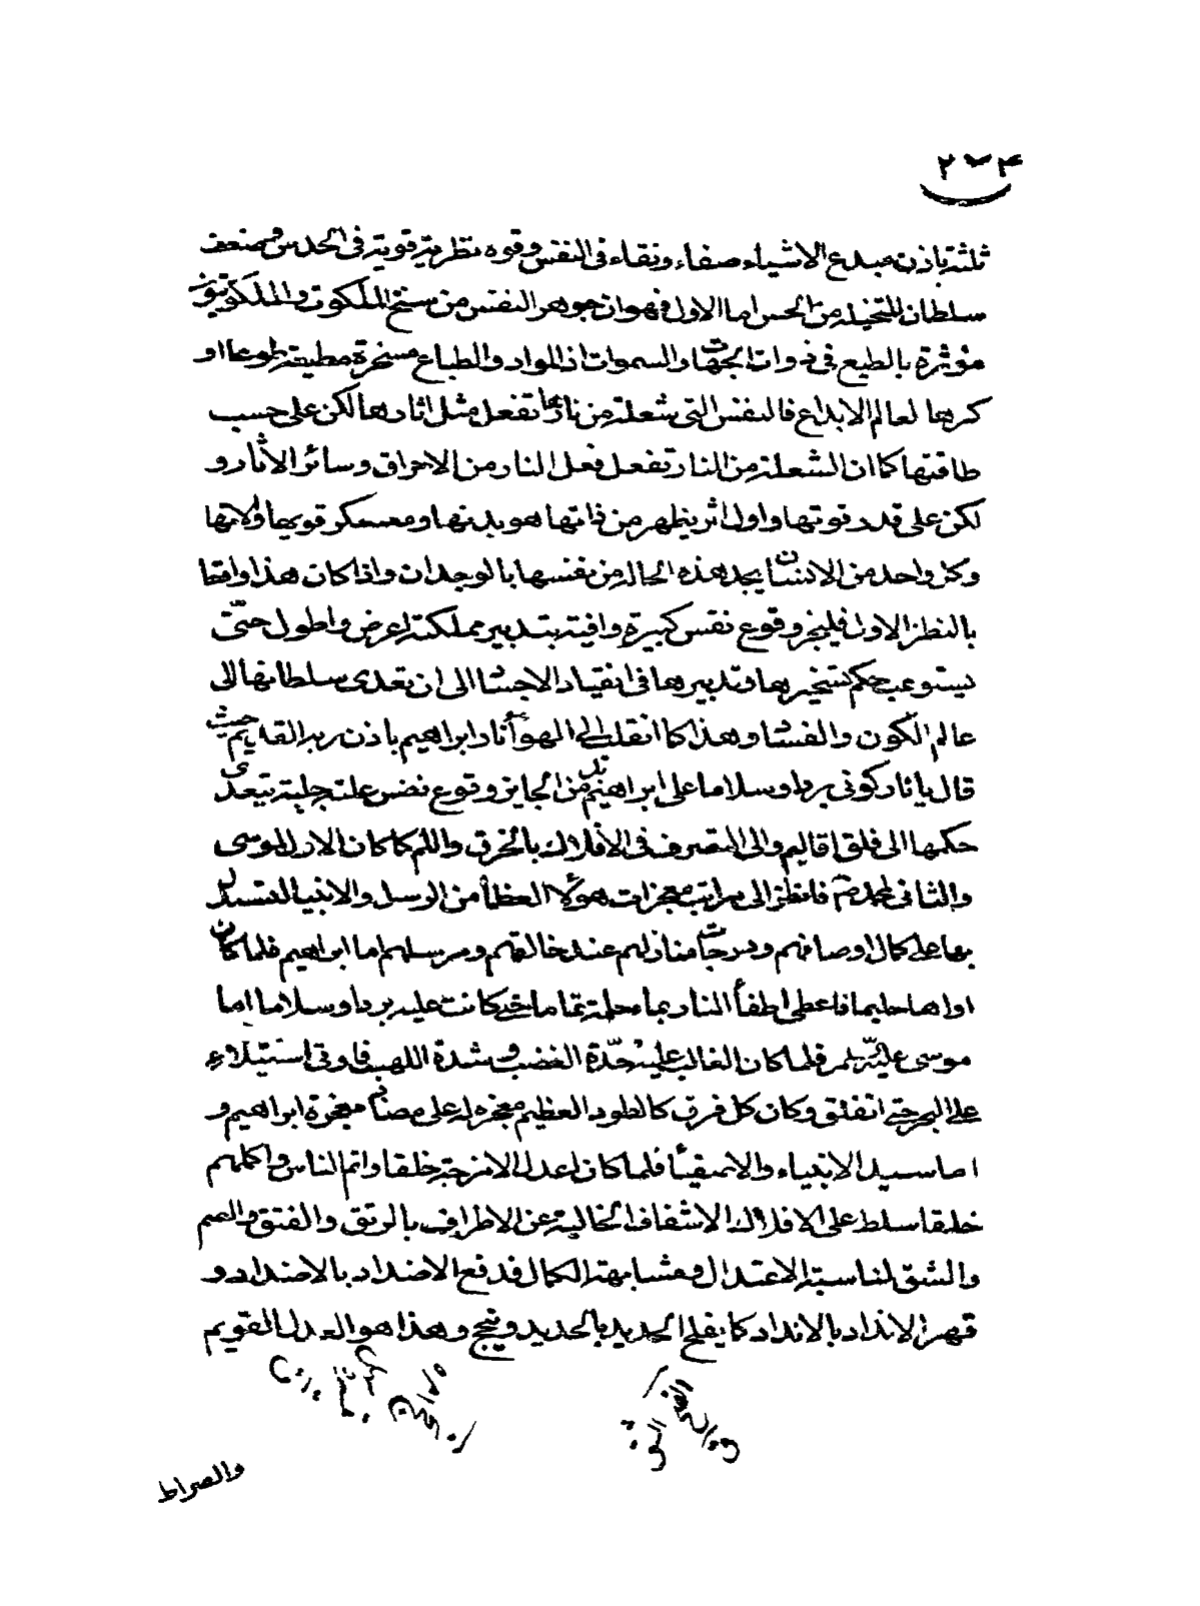 ٢٦٤
ثلثة باذن مبدع الاشياء صفاء ونقاء فى النفس وقوه نظرية قوية فى الحدس وضعف
سلطان المتخيلة من الحس اما الاول فهو ان جوهر النفس من سنخ الملكوت والملكوتيون
مؤثرة بالطبع فى ذوات الجهات والسموات اذ المواد والطباع مسخرة مطيعة طوعا او
كرها لعالم الابداع فالنفس التى شعلة من نارها تفعل مثل اثارها لكن على حسب
طاقتها كما ان الشعلة من النار تفعل فعل النار من الاحراق وسائر الاثار و
لكن على قدر قوتها واول اثر يظهر من ذاتها هو بدنها ومعسكر قويها والاتها
وكل واحد من الانسان يجد هذه الحالة من نفسها بالوجدان واذا كان هذا واقعا
بالنظر الاول فليجز وقوع نفس كبيرة وافية بتدبير مملكة اعرض واطول حتى
يستوعب حكم تسخيرها وتدبيرها فى انقياد الاجسام الى ان تعدى سلطانها الى
عالم الكون والفساد وهذا كما انقلب الى الهواء نار ابراهيم باذن ربه القديم حيث
قال يا نار كونى بردا وسلاما على ابراهيم من الجايز وقوع نفس علة جلية يتعدى
حكمها الى فلق اقاليم والى التصرف فى الافلاك بالخرق واللم كما كان الاول لموسى
والثانى لمحمد ص فانظر الى مراتب معجزات هؤلاء العظماء من الرسل والانبيا لتستدل
بها على كمال اوصافهم ودرجات منازلهم عند خالقهم ومرسلهم اما ابراهيم فلما كان
اواها حليما فاعطى اطفأ النار بماء حلمه تماما حتى كانت عليه بردا وسلاما اما
موسى عليه السلم فلما كان الغالب عليه حدة الغضب وشدة اللهب فاوتى استيلاء
على البحر حتى انفلق وكان كل فرق كالطود العظيم معجزه له على معجزة ابراهيم و
اما سيد الانبياء والاصفياء فلما كان اعدل الامزجة خلقا واتم الناس واكملهم
خلقا سلط على الافلاك الاشفاف الخالية عن الاطراف بالرتق والفتق والضم
والشق لمناسبة الاعتدال ومشابهة الكمال فدفع الاضداد بالاضداد و
قهر الانداد بالانداد كما يفلح الحديد بالحديد وهذا هو العدل القويم
والصراط